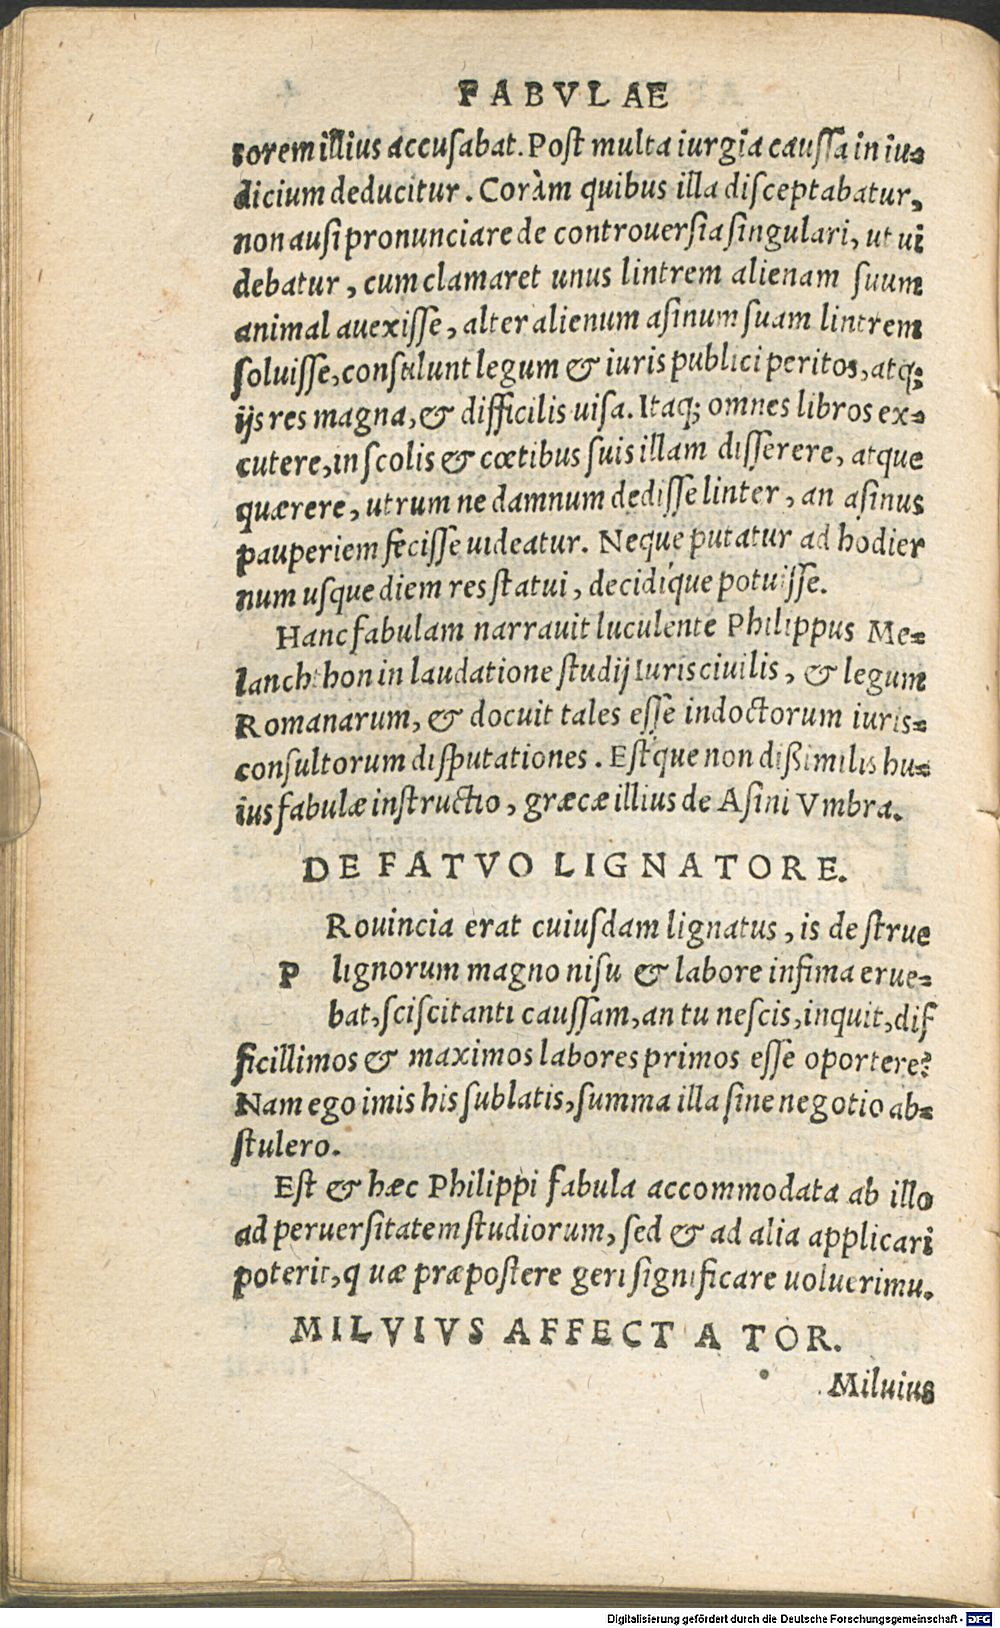 FABVLAE
toremillius accusabat. Post multa iurgia caussa in iu-
dicium deducitur. Coràm quibus illa disceptabatur,
non ausi pronunciare de controuersia singulari, ut ui
debatur, cum clamaret unus lintrem alienam suum
animal auexisse, alter alienum asinum suam lintrem
soluisse, consulunt legum & iuris publici peritos, atq;
ijs res magna, & difficilis uisa. Itaq; omnes libros ex-
cutere, in scolis & cœtibus suis illam disserere, atque
quærere, utrum ne damnum dedisse linter, an asinus
pauperiem fecisse uideatur. Neque putatur ad hodier
num usque diem res statui, decidíque potuisse.
Hanc fabulam narrauit luculente Philippus Me-
lanchthon in laudatione studij Iuris ciuilis, & legum
Romanarum, & docuit tales esse indoctorum iuris-
consultorum disputationes. Estque non dißimilis hu-
ius fabulæ instructio, græcæ illius de Asini Vmbra.
DE FATVO LIGNATORE.
PRouincia erat cuiusdam lignatus, is de strue
lignorum magno nisu & labore infima erue-
bat, sciscitanti caussam, an tu nescis, inquit, dif
ficillimos & maximos labores primos esse oportere?
Nam ego imis his sublatis, summa illa sine negotio ab-
stulero.
Est & hæc Philippi fabula accommodata ab illo
ad peruersitatem studiorum, sed & ad alia applicari
poterit, quæ præpostere geri significare uoluerimu.
MILVIVS AFFECTATOR.
Miluius
Digitalisierung gefördert durch die Deutsche Forschungsgemeinschaft - DFG